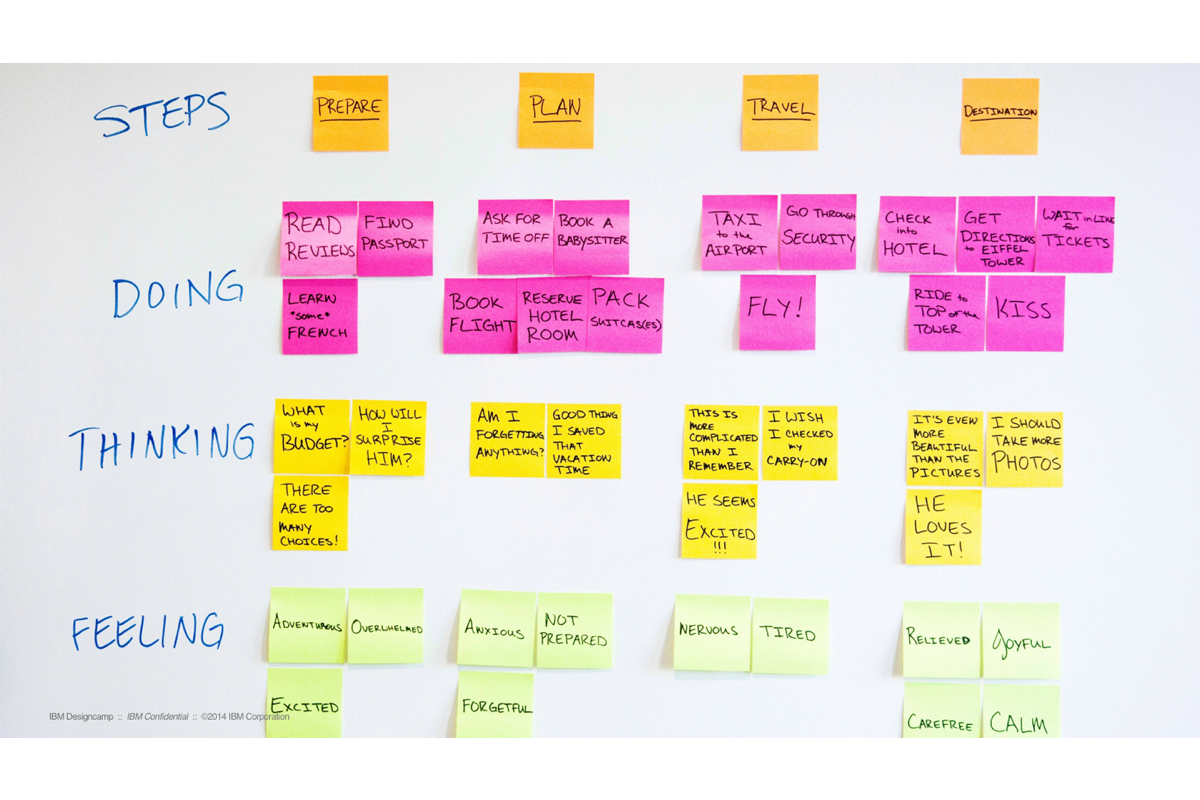 STEPS
PREPARE
PLAN
TRAVEL
DESTINATION
DOING
READ
REVIEWS
FIND
PASSPORT
LEARN
*some*
FRENCH
ASK FOR
TIME OFF
BOOK A
BABYSITTER
BOOK
FLIGHT
RESERVE
HOTEL
ROOM
PACK
SUITCAS(ES)
TAXI
to the
AIRPORT
GO THROUGH
SECURITY
FLY!
CHECK
into
HOTEL
GET
DIRECTIONS
to EIFFEL
TOWER
WAIT in LINE
for
TICKETS
RIDE to
TOP of the
TOWER
KISS
THINKING
WHAT
is my
BUDGET?
HOW WILL
I
SURPRISE
HIM?
THERE
ARE TOO
MANY
CHOICES!
AM I
FORGETTING
ANYTHING?
GOOD THING
I SAVED
THAT
VACATION
TIME
THIS IS
MORE
COMPLICATED
THAN I
REMEMBER
I WISH
I CHECKED
my
CARRY-ON
HE SEEMS
EXCITED
!!!
IT'S EVEN
MORE
BEAUTIFUL
THAN THE
PICTURES
I SHOULD
TAKE MORE
PHOTOS
HE
LOVES
IT!
FEELING
ADVENTUROUS
OVERWHELMED
EXCITED
ANXIOUS
NOT
PREPARED
FORGETFUL
NERVOUS
TIRED
RELIEVED
JOYFUL
CAREFREE
CALM
IBM Designcamp :: IBM Confidential :: ©2014 IBM Corporation